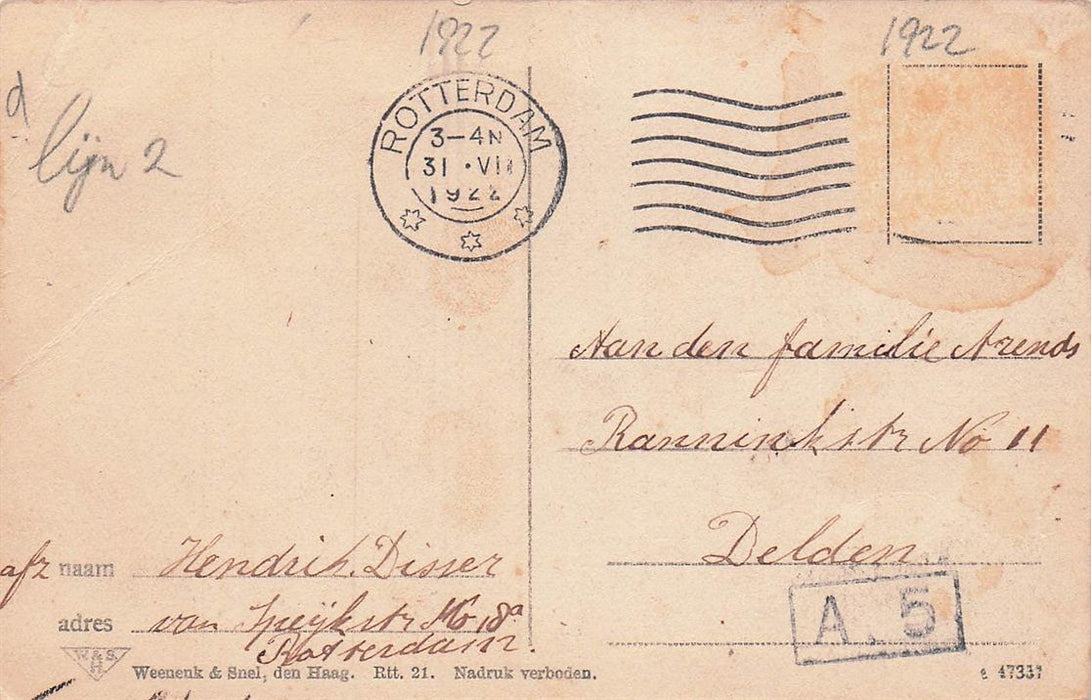 1922
1922
d
lijn 2
ROTTERDAM
3-4N
31 · VII
1922
Aan den familie Arends
Ranninkstr No 11
Delden
afz naam Hendrik Disser
adres van Speijkstr No 18a
Rotterdam.
A. 5
W & S
H
Weenenk & Snel, den Haag. Rtt. 21. Nadruk verboden.
47337